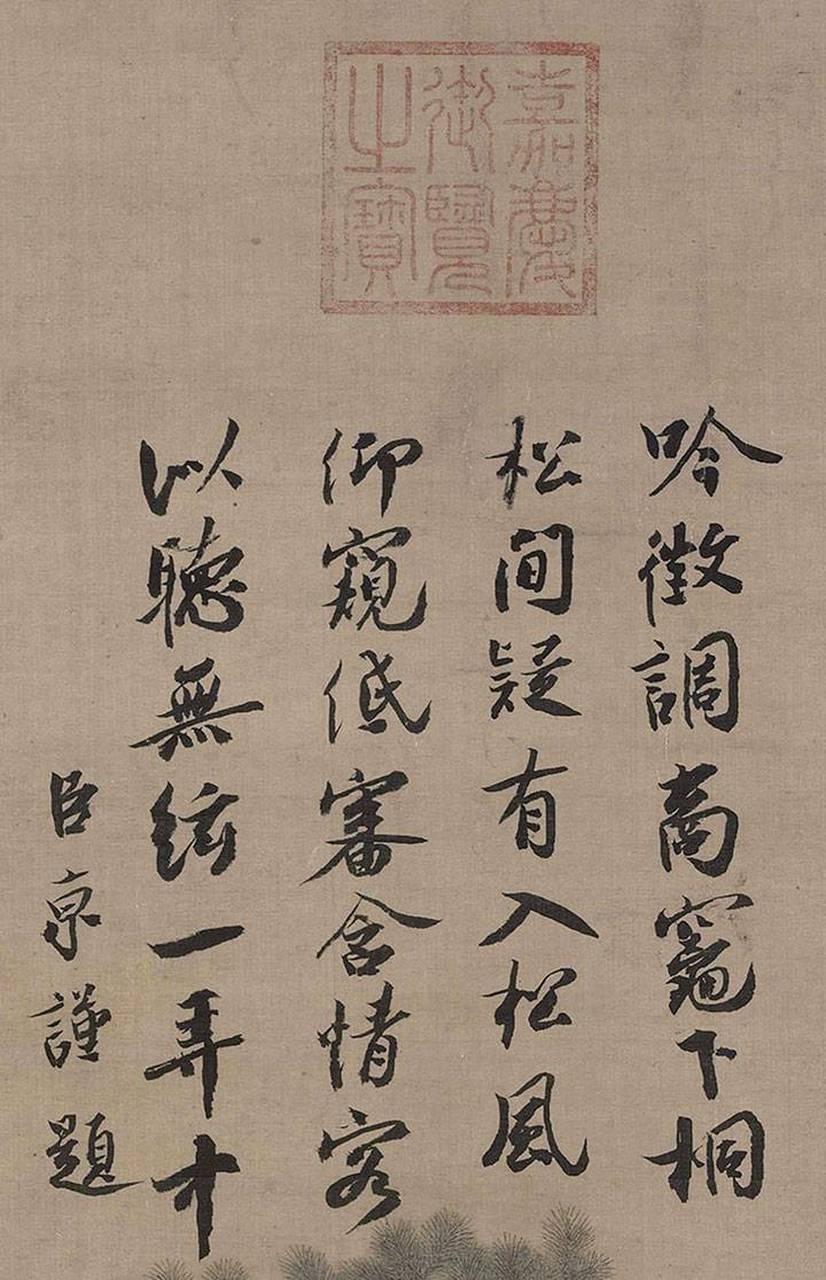 嘉慶
御覽
之寶
吟徵調商竈下桐
松間疑有入松風
仰窺低審含情客
以聽無絃一弄中
臣京謹題